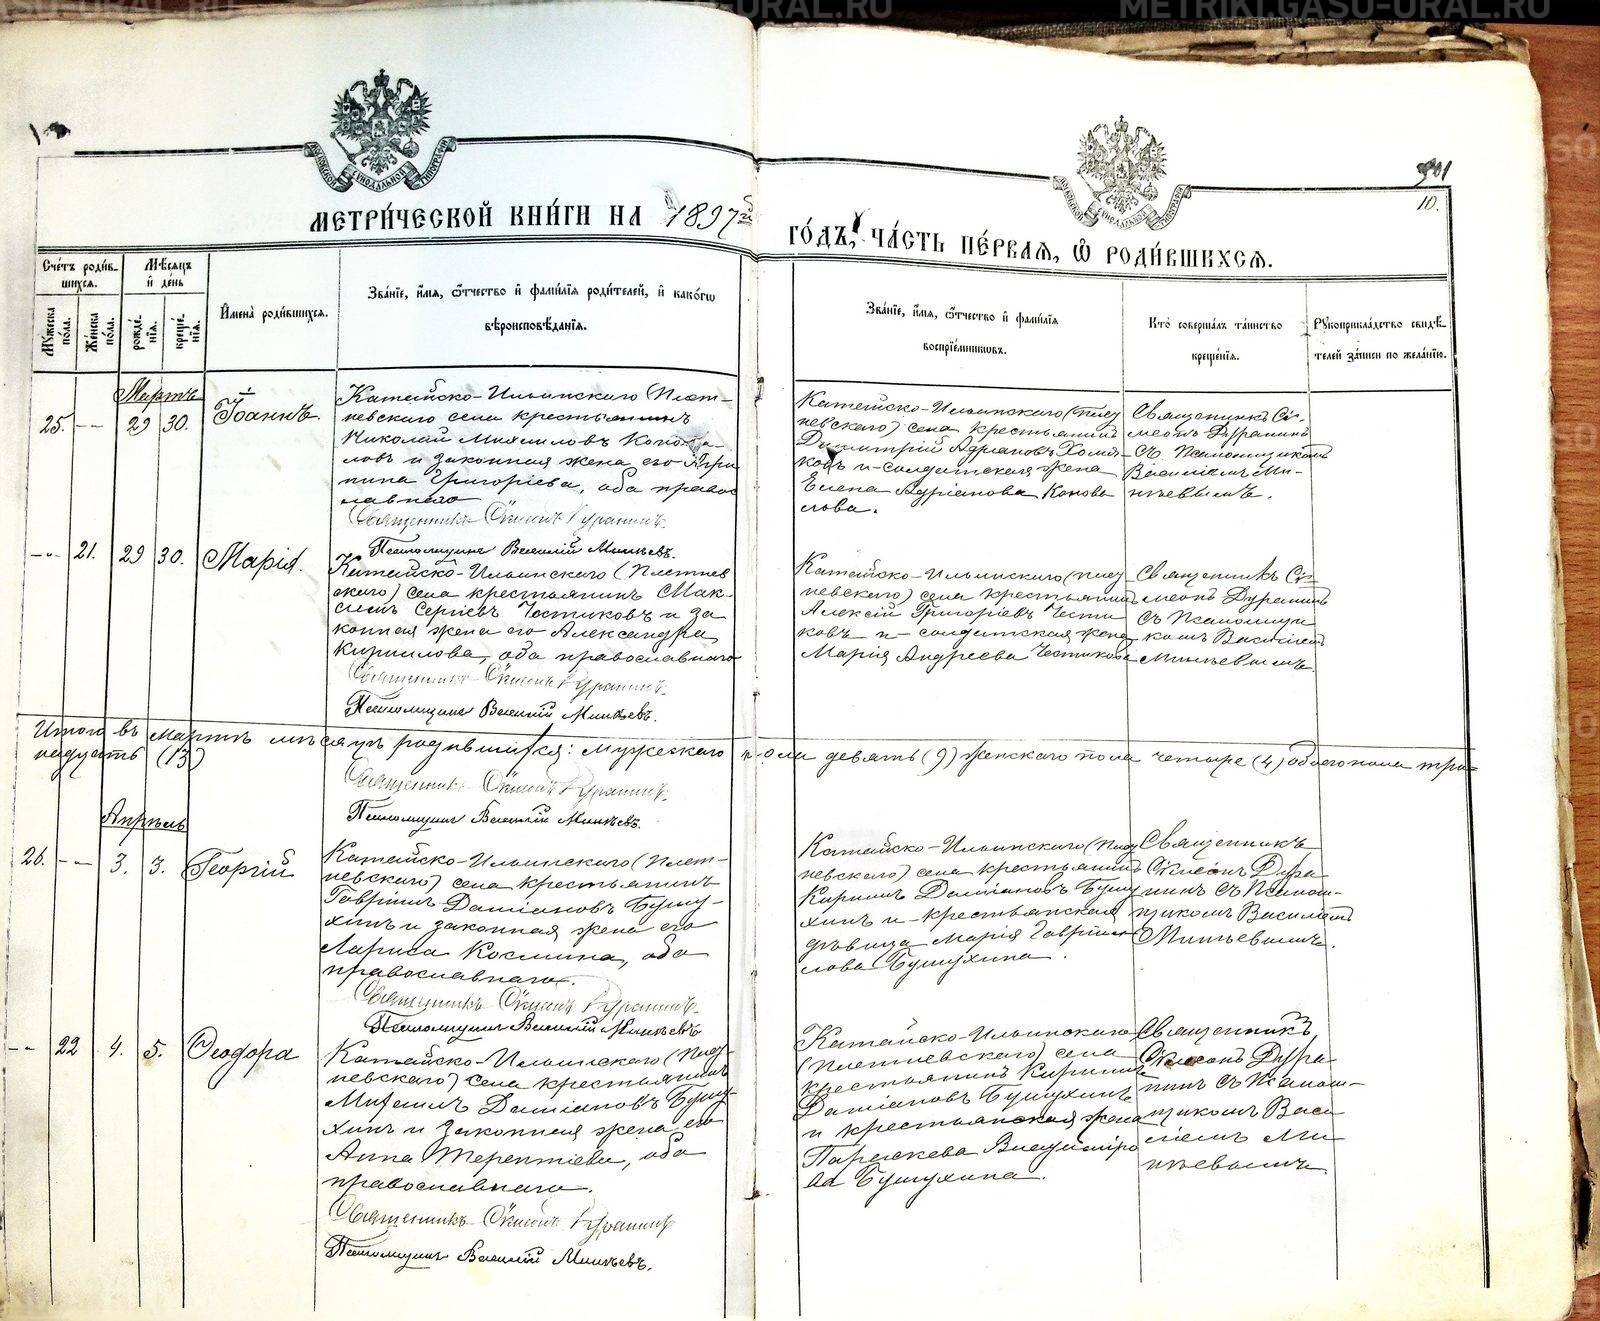 METRIKI.GASU-URAL.RU
МЕТРИ́ЧЕСКОЙ КНИ́ГИ НА 1897й
ГО́ДЪ, ЧА́СТЬ ПЕ́РВАЯ, Ѡ РОДИ́ВШИХСЯ.
10.
Сче́тъ роди́в-
шихся.
Мѣ́сяцъ
и де́нь
Му́жеска
по́ла.
Же́нска
по́ла.
рожде́-
нія.
креще́-
нія.
Имена̀ роди́вшихся.
Зва́ніе, и́мя, о́тчество и фами́лія роди́телей, и како́гѡ
вѣроисповѣ́данія.
Зва́ніе, и́мя, о́тчество и фами́лія
воспріе́мниковъ.
Кто̀ соверша́лъ та́инство
креще́нія.
Рукоприкла́дство свидѣ́-
телей за́писи по жела́нію.
Мартъ
25. 29 30. Іоаннъ
Катайско-Ильинскаго (Плет-
невскаго) села крестьянинъ
Николай Михаиловъ Конова-
ловъ и законная жена его Агри-
пина Григоріева, оба правос
лавнаго
Священникъ Сѵмеонъ Дуранинъ.
Псаломщикъ Василій Минѣевъ.
Катайско-Ильинскаго (Плет
невскаго) села крестьянинъ
Димитрій Адріановъ
и солдатская жена
Елена Адріанова Конова
лова.
Священникъ Сѵ-
меонъ Дуранинъ
съ Псаломщикомъ
Василіемъ Ми-
нѣевымъ.
21. 29 30. Марія.
Катайско-Ильинскаго (Плетнев
скаго) села крестьянинъ Мак-
симъ Сергіевъ Честиковъ и за
конная жена его Александра
Кириллова, оба православнаго
Священникъ Сѵмеонъ Дуранинъ.
Псаломщикъ Василій Минѣевъ.
Катайско-Ильинскаго (Плет
невскаго) села крестьянинъ
Алексій Григоріевъ Чести
ковъ и солдатская жена
Марія Андреева Честикова
Священникъ Сѵ-
меонъ Дуранинъ
съ Псаломщи
комъ Василіемъ
Минѣевымъ.
Итого въ мартѣ мѣсяцѣ родившихся: мужескаго пола девять (9) женскаго пола четыре (4) обоего пола три-
надцать (13)
Священникъ Сѵмеонъ Дуранинъ.
Псаломщикъ Василій Минѣевъ.
Апрѣль
26. 3. 3. Георгій
Катайско-Ильинскаго (Плет-
невскаго) села крестьянинъ
Гавріилъ Даміановъ Бушу-
хинъ и законная жена его
Лариса Космина, оба
православнаго.
Священникъ Сѵмеонъ Дуранинъ.
Псаломщикъ Василій Минѣевъ
Катайско-Ильинскаго (Плет
невскаго) села крестьянинъ
Кириллъ Даміановъ Бушу
хинъ и крестьянская
дѣвица Марія Гавріи
лова Бушухина.
Священникъ
Сѵмеонъ Дура
нинъ съ Псалом-
щикомъ Василіемъ
Минѣевымъ.
22 4. 5. Ѳеодора
Катайско-Ильинскаго (Плет-
невскаго) села крестьянинъ
Михаилъ Даміановъ Бушу-
хинъ и законная жена его
Анна Терентіева, оба
православнаго.
Священникъ Сѵмеонъ Дуранинъ
Псаломщикъ Василій Минѣевъ.
Катайско-Ильинскаго
(Плетневскаго) села
крестьянинъ Кириллъ
Даміановъ Бушухинъ
и крестьянская жена
Параскева Владиміро
ва Бушухина.
Священникъ
Сѵмеонъ Дура-
нинъ съ Псалом-
щикомъ Васи
ліемъ Ми
нѣевымъ